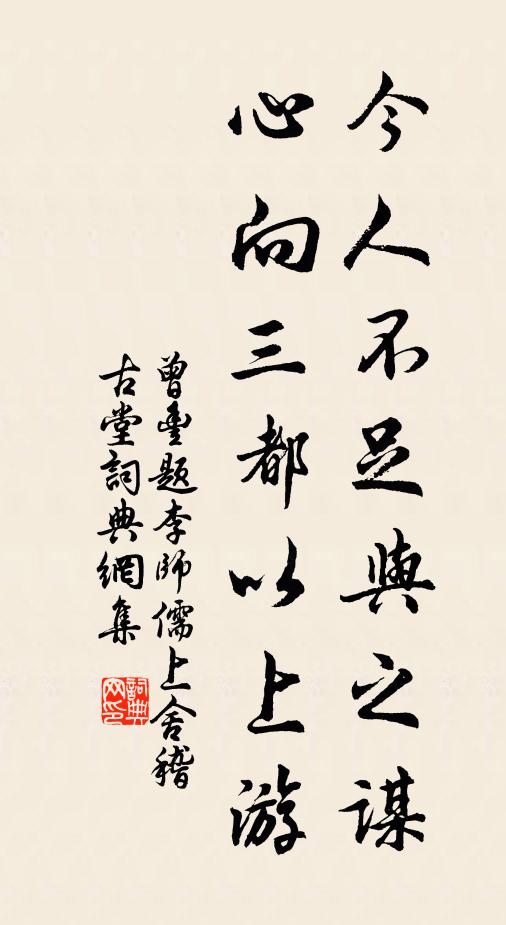 今人不足與之謀
心向三都以上游
曾豐題李師儒上舍稽
古堂詞典網集
詞典
网印